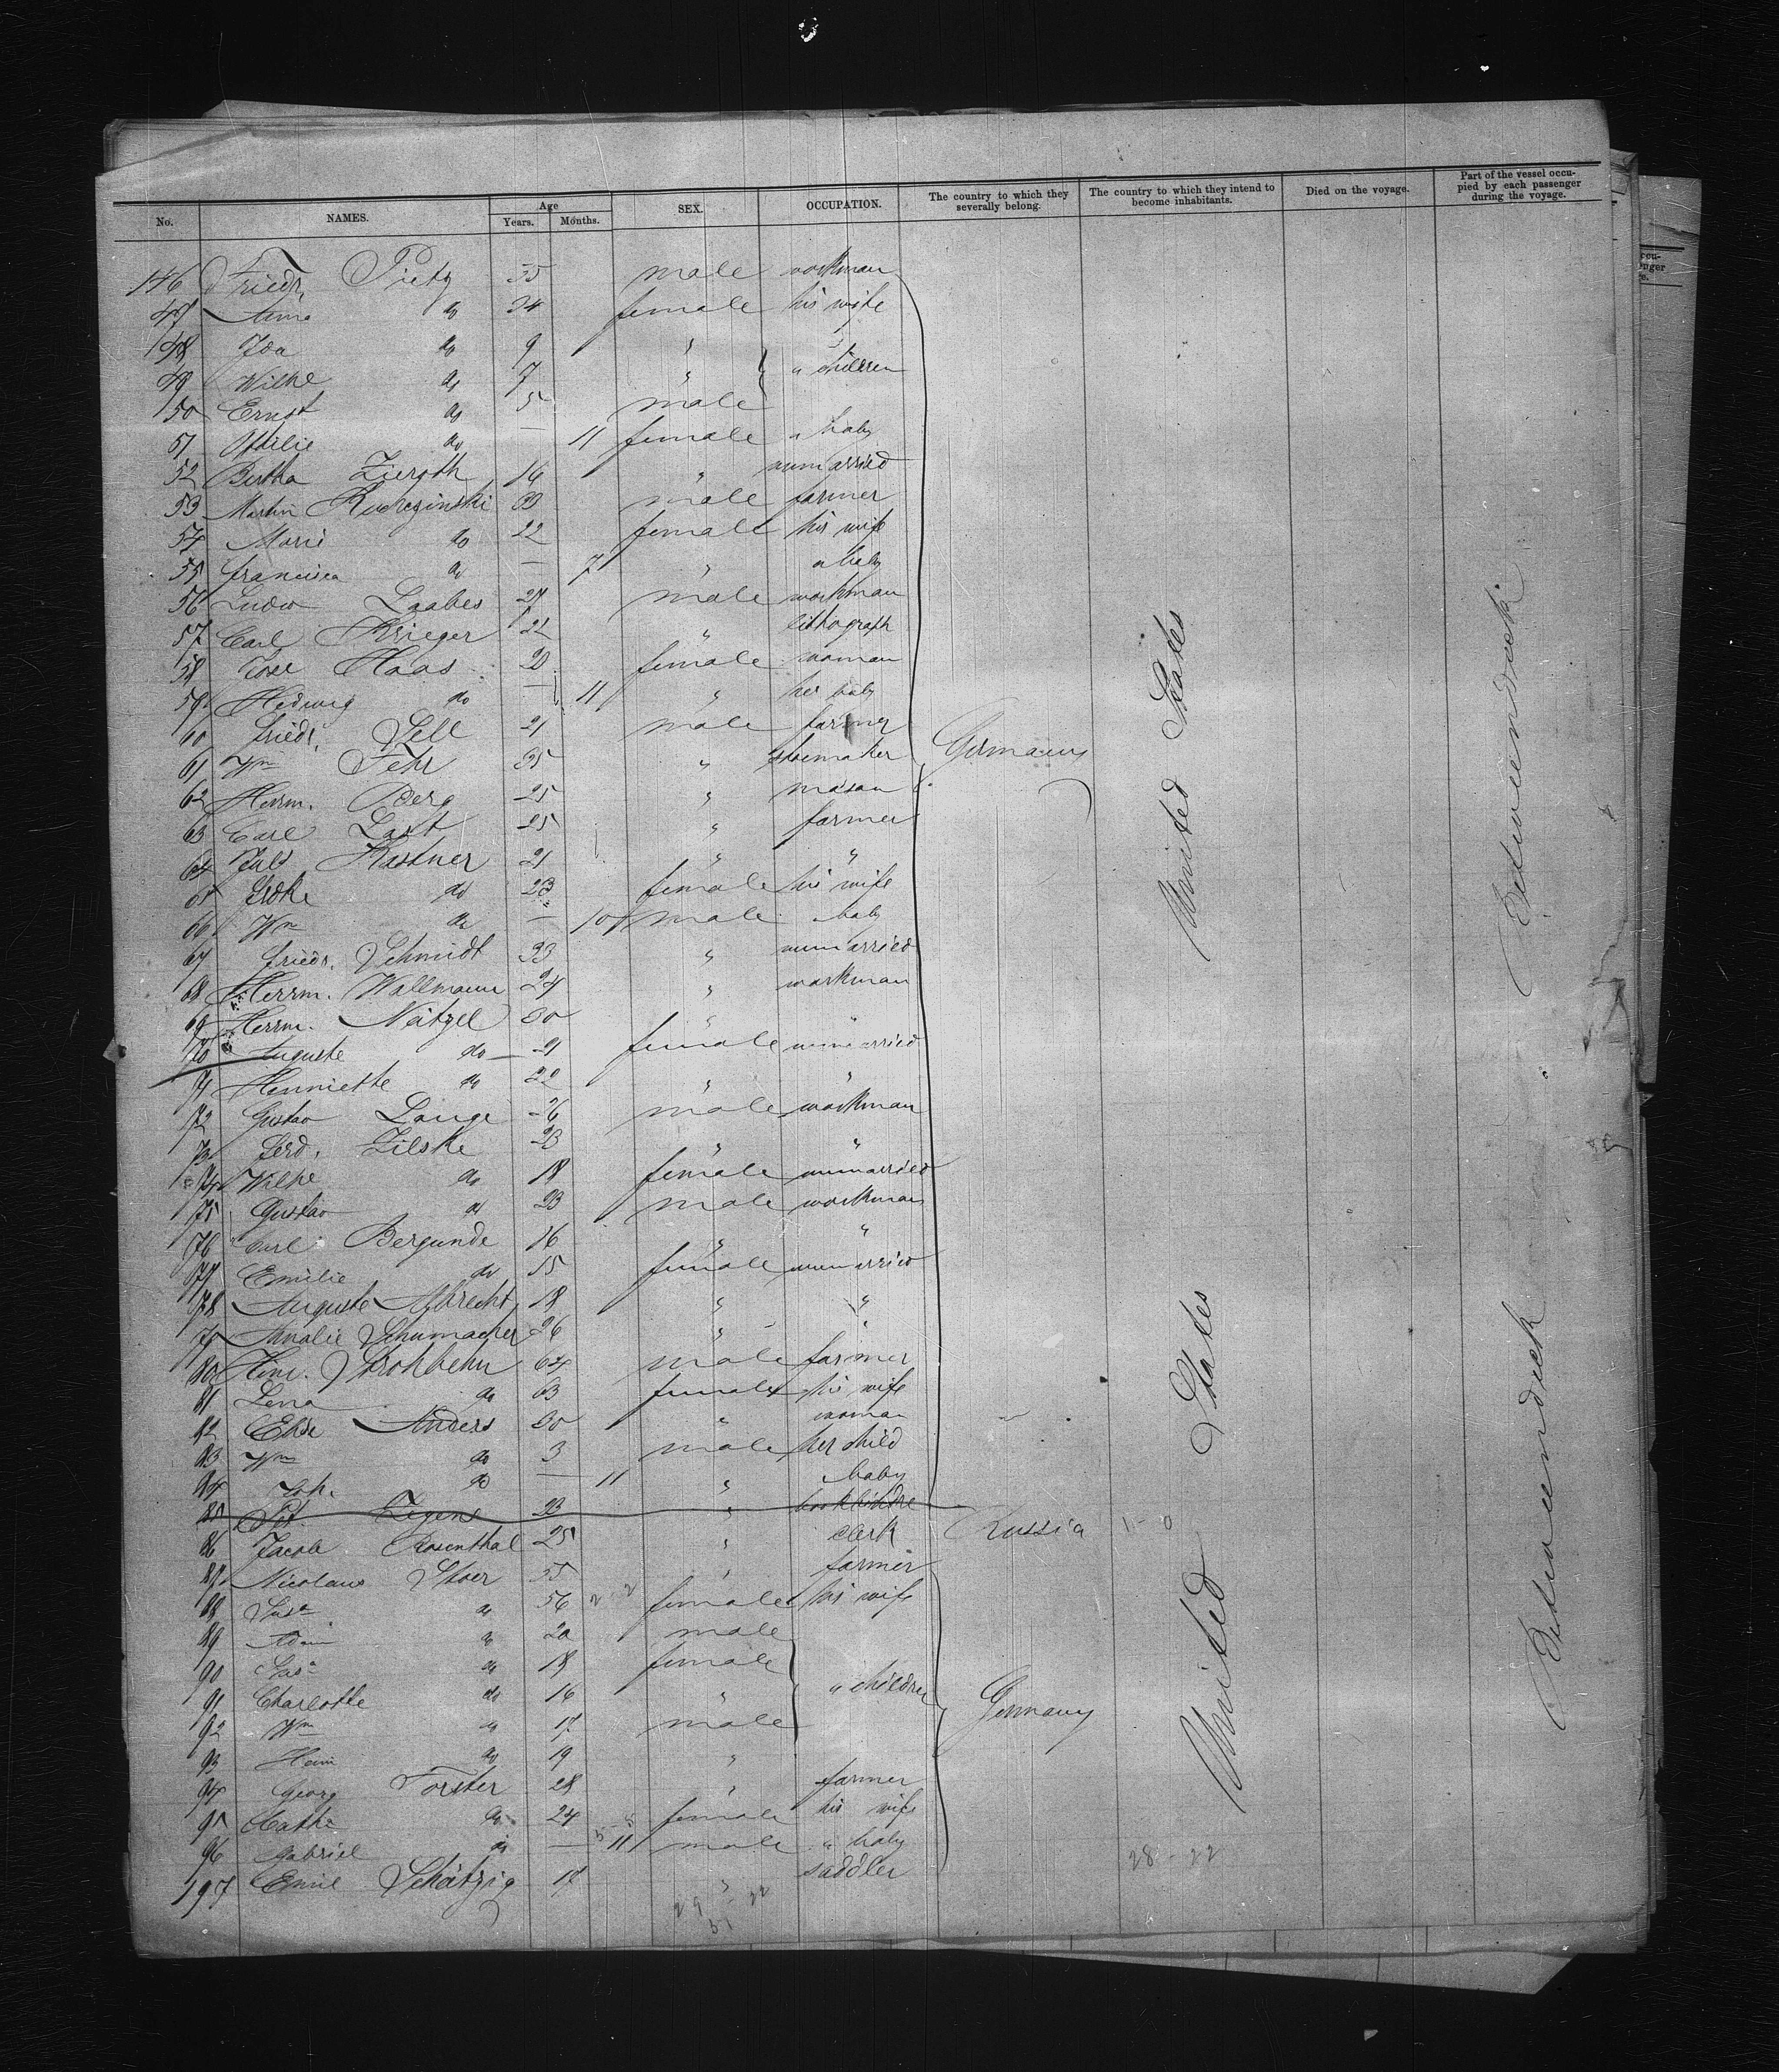 No. NAMES. Age Years. Months. SEX. OCCUPATION. The country to which they severally belong. The country to which they intend to become inhabitants. Died on the voyage. Part of the vessel occupied by each passenger during the voyage.
146 Friedr. Pietz 35 male workman
47 Anna do 34 female his wife
148 Ida do 9 "
49 Wilhe do 7 " " children
50 Ernst do 5 male
51 Ottilie do — 11 female " baby
52 Bertha Zieroth 16 " unmarried
53 Martin 33 male farmer
54 Marie do 22 female his wife
55 Francisca do — 7 " " baby
56 Ludw Laabes 27 male workman
57 Carl Krieger 21 " lithograph
58 Rose Haas 20 female woman
59 Hedwig do — 11 " her baby
60 Friedr. Sell 21 male farmer
61 Wm Fehr 35 " shoemaker Germany
62 Herm. Berg 25 " mason
63 Carl Last 25 " farmer
64 Juls Kastner 21 " "
65 do 23 female his wife
66 Wm do — 10 male baby
67 Friedr. Schmidt 33 " unmarried
68 Herrm. Wallmann 24 " workman
69 Herrm. Nätzel 30 " "
170 Auguste do 21 female unmarried
71 Henriette do 22 " "
72 Gustav Lange 26 male workman
73 Ferd. Zilske 23 " "
174 Wilhe do 18 female unmarried
75 Gustav do 23 male workman
76 Carl Bergunde 16 " "
177 Emilie do 15 female unmarried
178 Auguste Albrecht 18 " "
79 Amalie Schumacher 26 " "
80 Hinr. Strohbehn 64 male farmer
81 Lena do 63 female his wife
82 Elise Anders 30 " woman
83 Wm do 3 male her child
84 Joh. do — 11 " baby
85 Pet. 23 " bookbindre
86 Jacob Rosenthal 25 " clerk Russia 1-0
87 Nicolaus Stoer 55 " farmer
88 Susa do 56 2-2 female his wife
89 Adam do 20 male
90 Susa do 18 female
91 Charlotte do 16 " " children
92 Wm " 17 male Germany
93 do 19 "
94 Georg Forster 28 " farmer
95 Kathe do 24 female his wife
96 Gabriel do — 11 male " baby
197 Emil Schätzig 17 " saddler
28-22
29-22
51
United States
United States
Zwischendeck
Zwischendeck